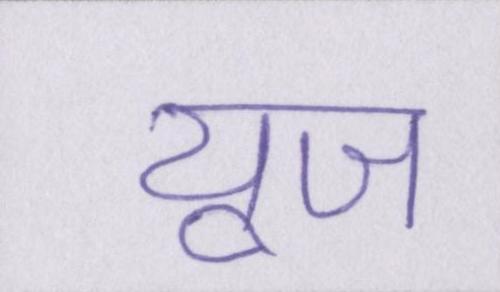 यूज